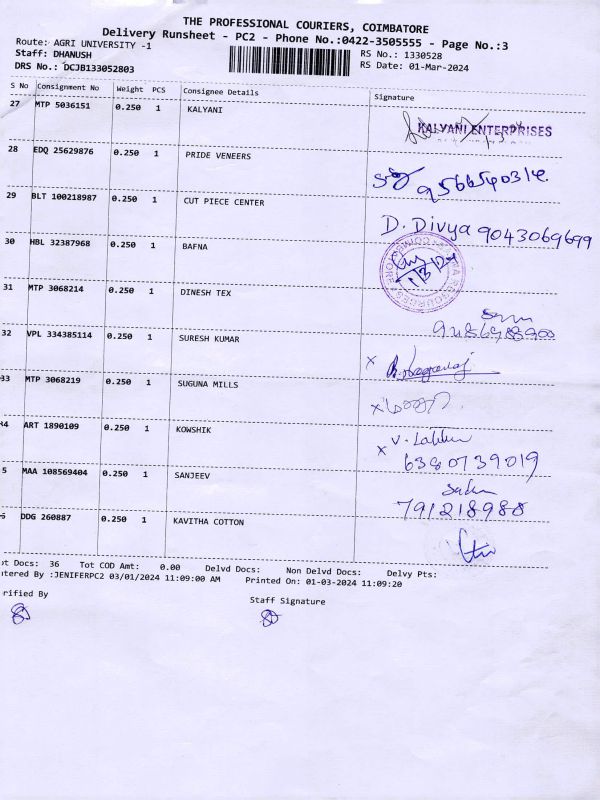 THE PROFESSIONAL COURIERS, COIMBATORE
Delivery Runsheet - PC2 - Phone No.:0422-3505555 - Page No.:3
Route: AGRI UNIVERSITY -1
RS No.: 1330528
Staff: DHANUSH
RS Date: 01-Mar-2024
DRS No.: DCJB133052803
S No Consignment No Weight PCS Consignee Details Signature
27 MTP 5036151 0.250 1 KALYANI
KALYANI ENTERPRISES
28 EDQ 25629876 0.250 1 PRIDE VENEERS
29 BLT 100218987 0.250 1 CUT PIECE CENTER
D. Divya 9043069699
30 HBL 32387968 0.250 1 BAFNA
31 MTP 3068214 0.250 1 DINESH TEX
32 VPL 334385114 0.250 1 SURESH KUMAR
33 MTP 3068219 0.250 1 SUGUNA MILLS
34 ART 1890109 0.250 1 KOWSHIK
6380739019
5 MAA 108569404 0.250 1 SANJEEV
791218988
6 DDG 260887 0.250 1 KAVITHA COTTON
ot Docs: 36 Tot COD Amt: 0.00 Delvd Docs: Non Delvd Docs: Delvy Pts:
ntered By :JENIFERPC2 03/01/2024 11:09:00 AM Printed On: 01-03-2024 11:09:20
rified By
Staff Signature